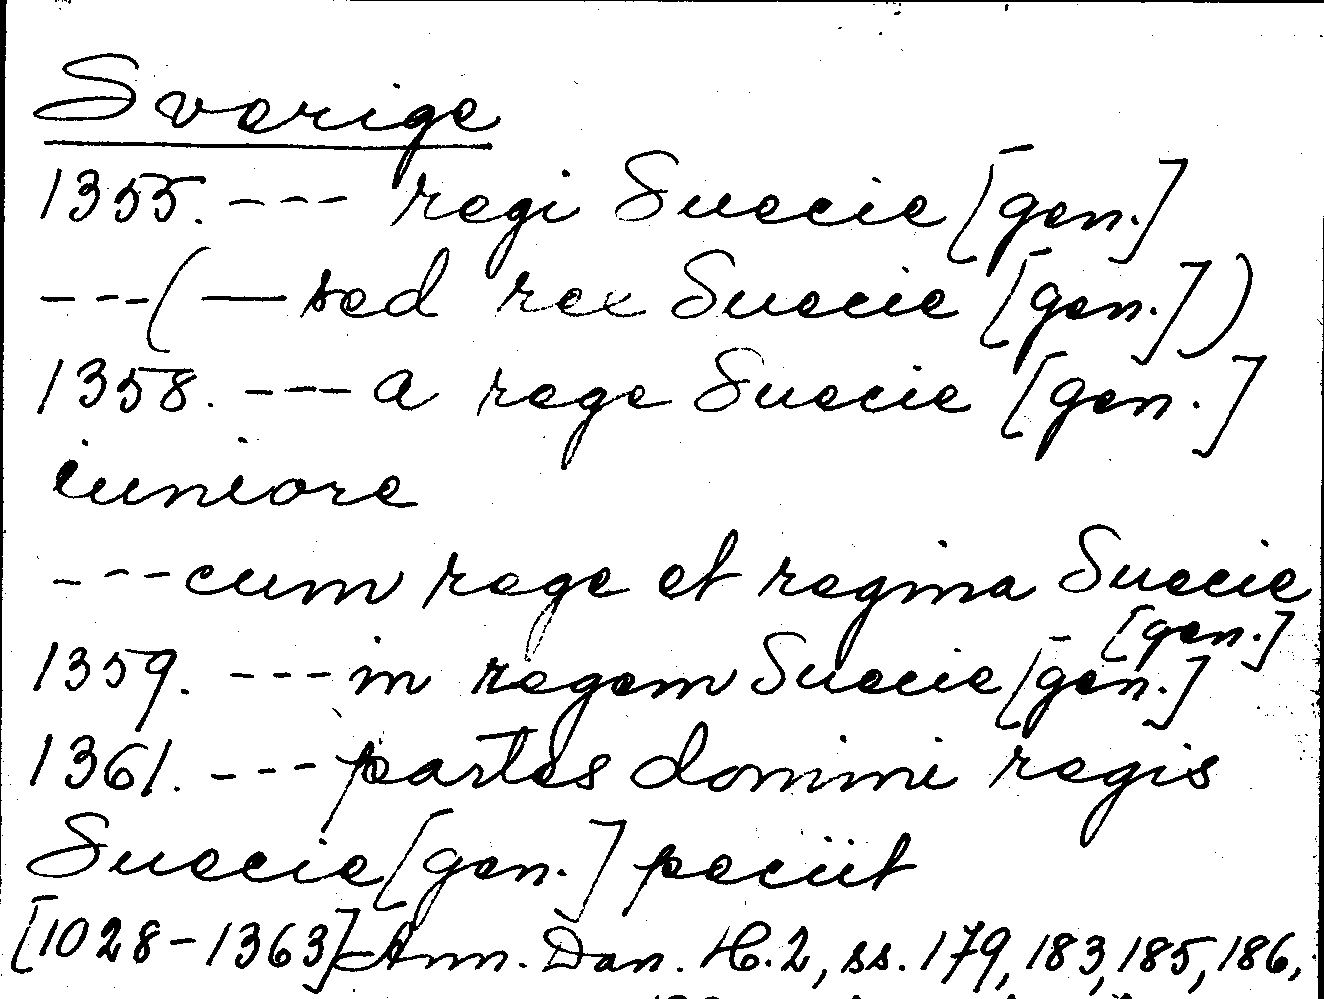 Sverige
1355. --- regi Suecie [gen.]
---(— sed rex Suecie [gen.])
1358. --- a rege Suecie [gen.]
iuniore
--- cum rege et regina Suecie
[gen.]
1359. --- in regem Suecie [gen.]
1361. --- partes domini regis
Suecie [gen.] peciit
[1028-1363] Ann. Dan. H.2, ss. 179, 183, 185, 186,